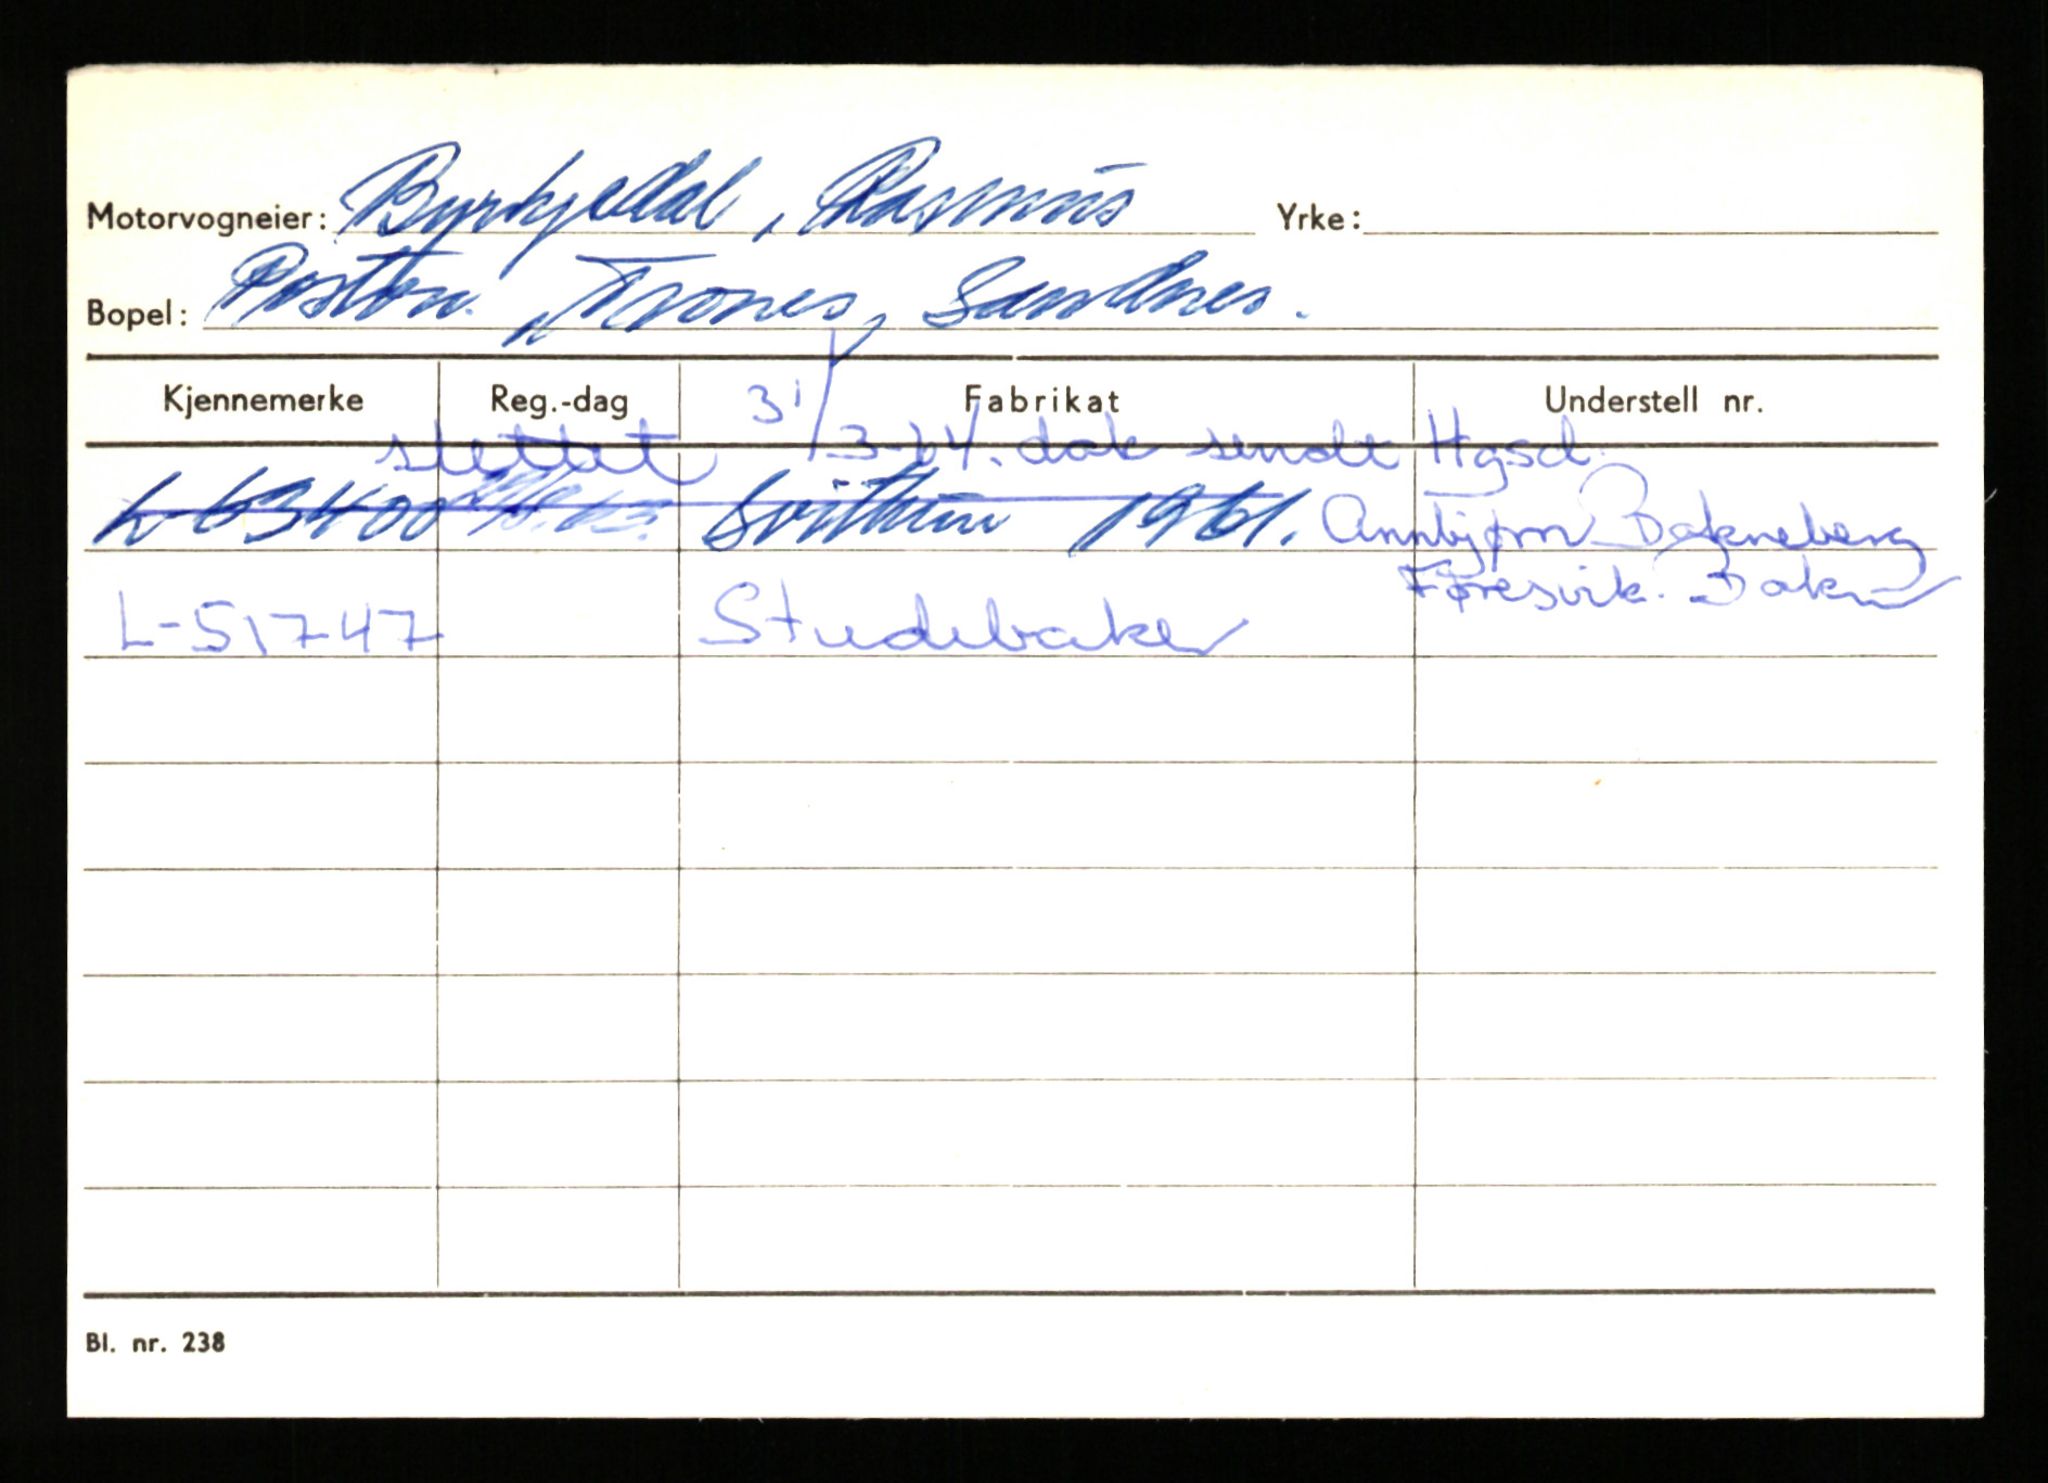 Motorvogneier: Byrkjedal, Rasmus Yrke:
Bopel: Postbn. Trones, Sandnes.
Kjennemerke Reg.-dag Fabrikat Understell nr.
slettet 31/3-64. dok sendt Hgsd.
L-63400 Svithun 1961. Annbjørn Bokneberg
Føresvik. Bokn
L-51747 Studebaker
Bl. nr. 238